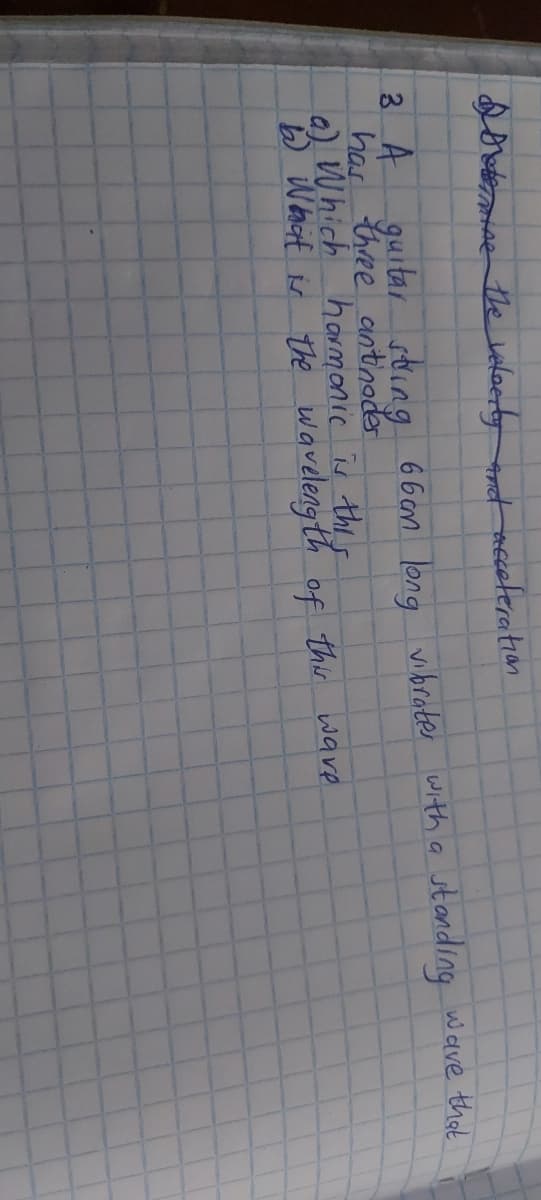 d) Determine the velocity and acceleration
3 A guitar string 66cm long vibrates with a standing wave that
has three antinodes
a) Which harmonic is this
b) What is the wavelength of this wave